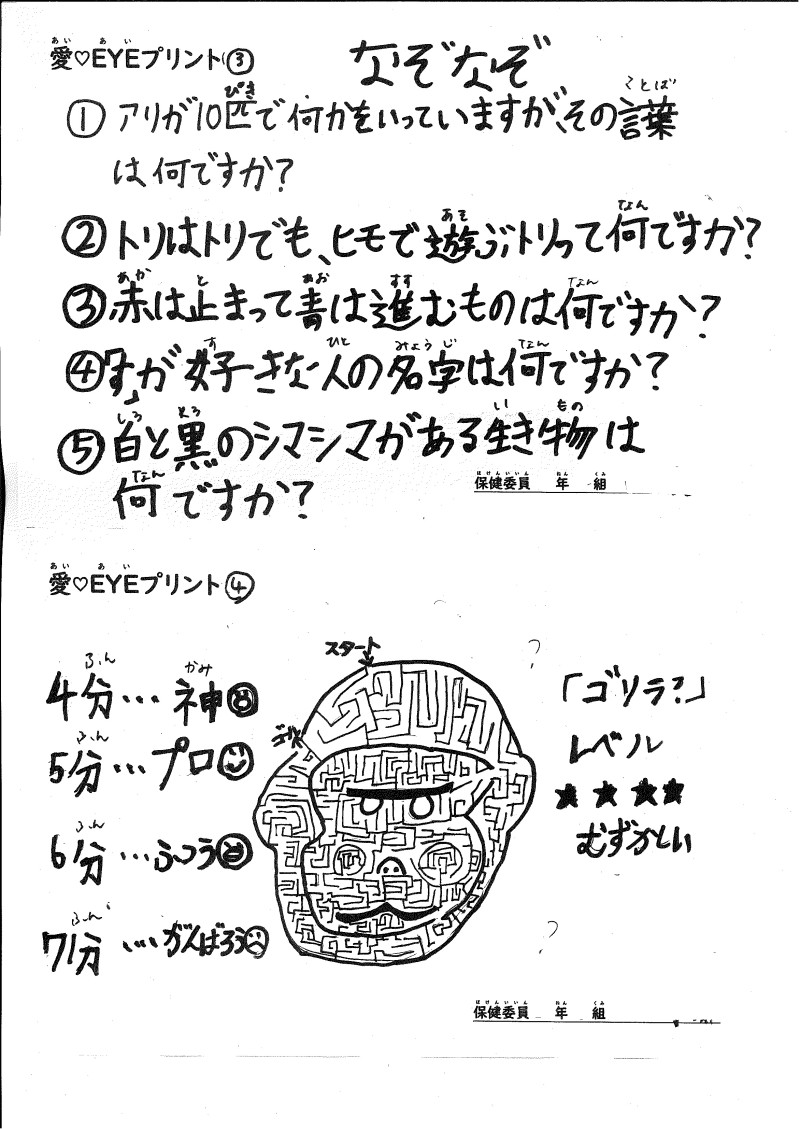 愛♡EYEプリント③
なぞなぞ
① アリが10匹で何かをいっていますが、その言葉
は何ですか?
② トリはトリでも、ヒモで遊ぶトリって何ですか?
③ 赤は止まって青は進むものは何ですか?
④ 「す」が好きな人の名字は何ですか?
⑤ 白と黒のシマシマがある生き物は
何ですか?
保健委員 年 組
愛♡EYEプリント④
スタート
ゴール
4分…神
5分…プロ
6分…ふつう
7分…がんばろう
「ゴリラ?」
レベル
★★★★
むずかしい
保健委員 年 組